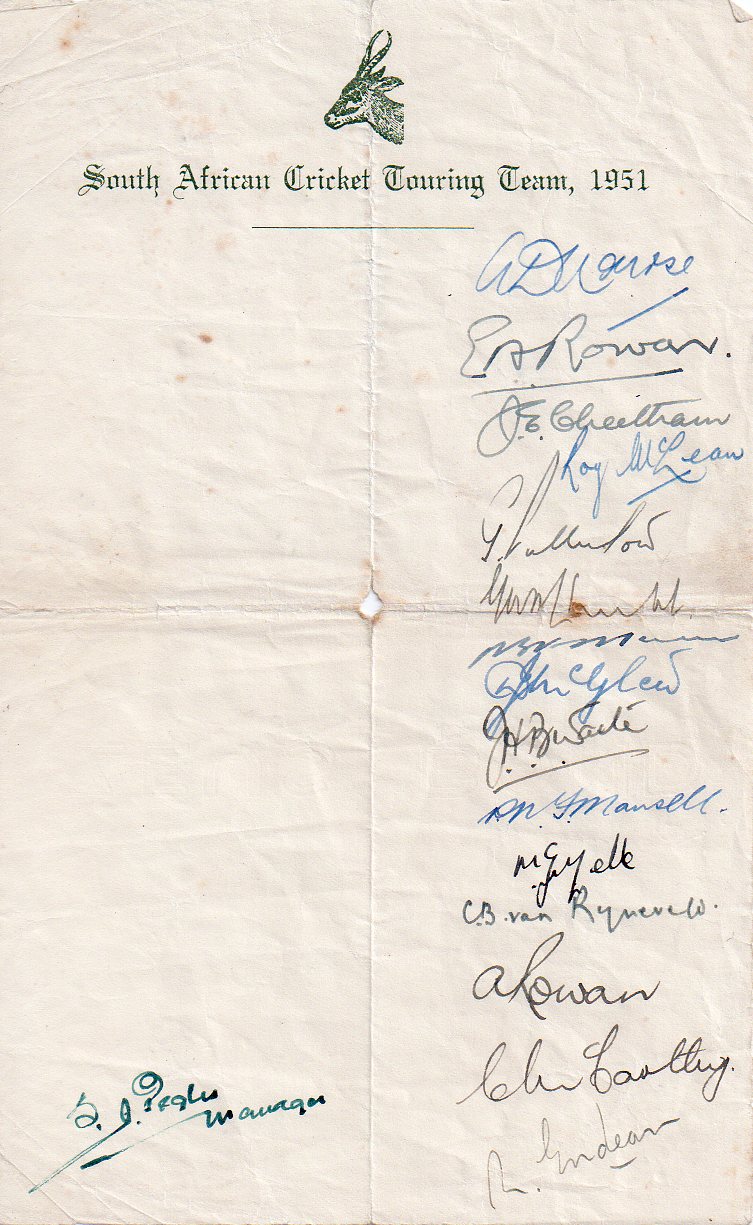 South African Cricket Touring Team, 1951
A D Nourse
E A Rowan.
J. E. Cheetham
Roy McLean
G. Fullerton
N B F Mann
John Cheetham
J. H. B. Waite
P. N. F. Mansell.
M G Melle
C.B. van Ryneveld.
A Rowan
R. Endean
S. J. Pegler
Manager